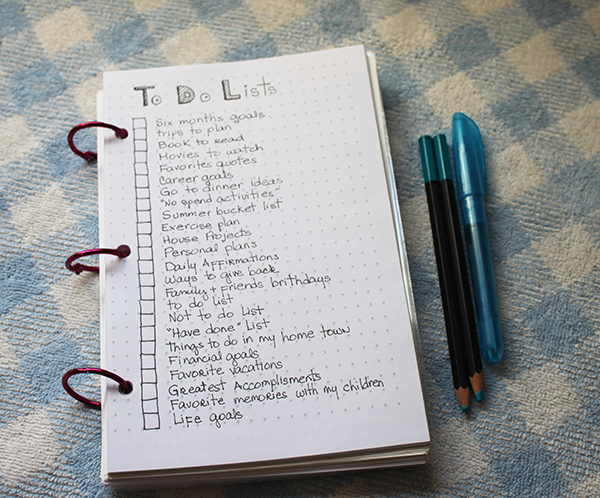 To Do Lists
Six months goals
trips to plan
Book to read
Movies to watch
Favorites quotes
Career goals
Go to dinner ideas
"No spend activities"
Summer bucket list
Exercise plan
House Projects
Personal plans
Daily Affirmations
Ways to give back
Family + Friends brithdays
to do list
Not to do List
"Have done" List
things to do in my home town
Financial goals
Favorite vacations
Greatest Accomplisments
Favorite memories with my children
Life goals